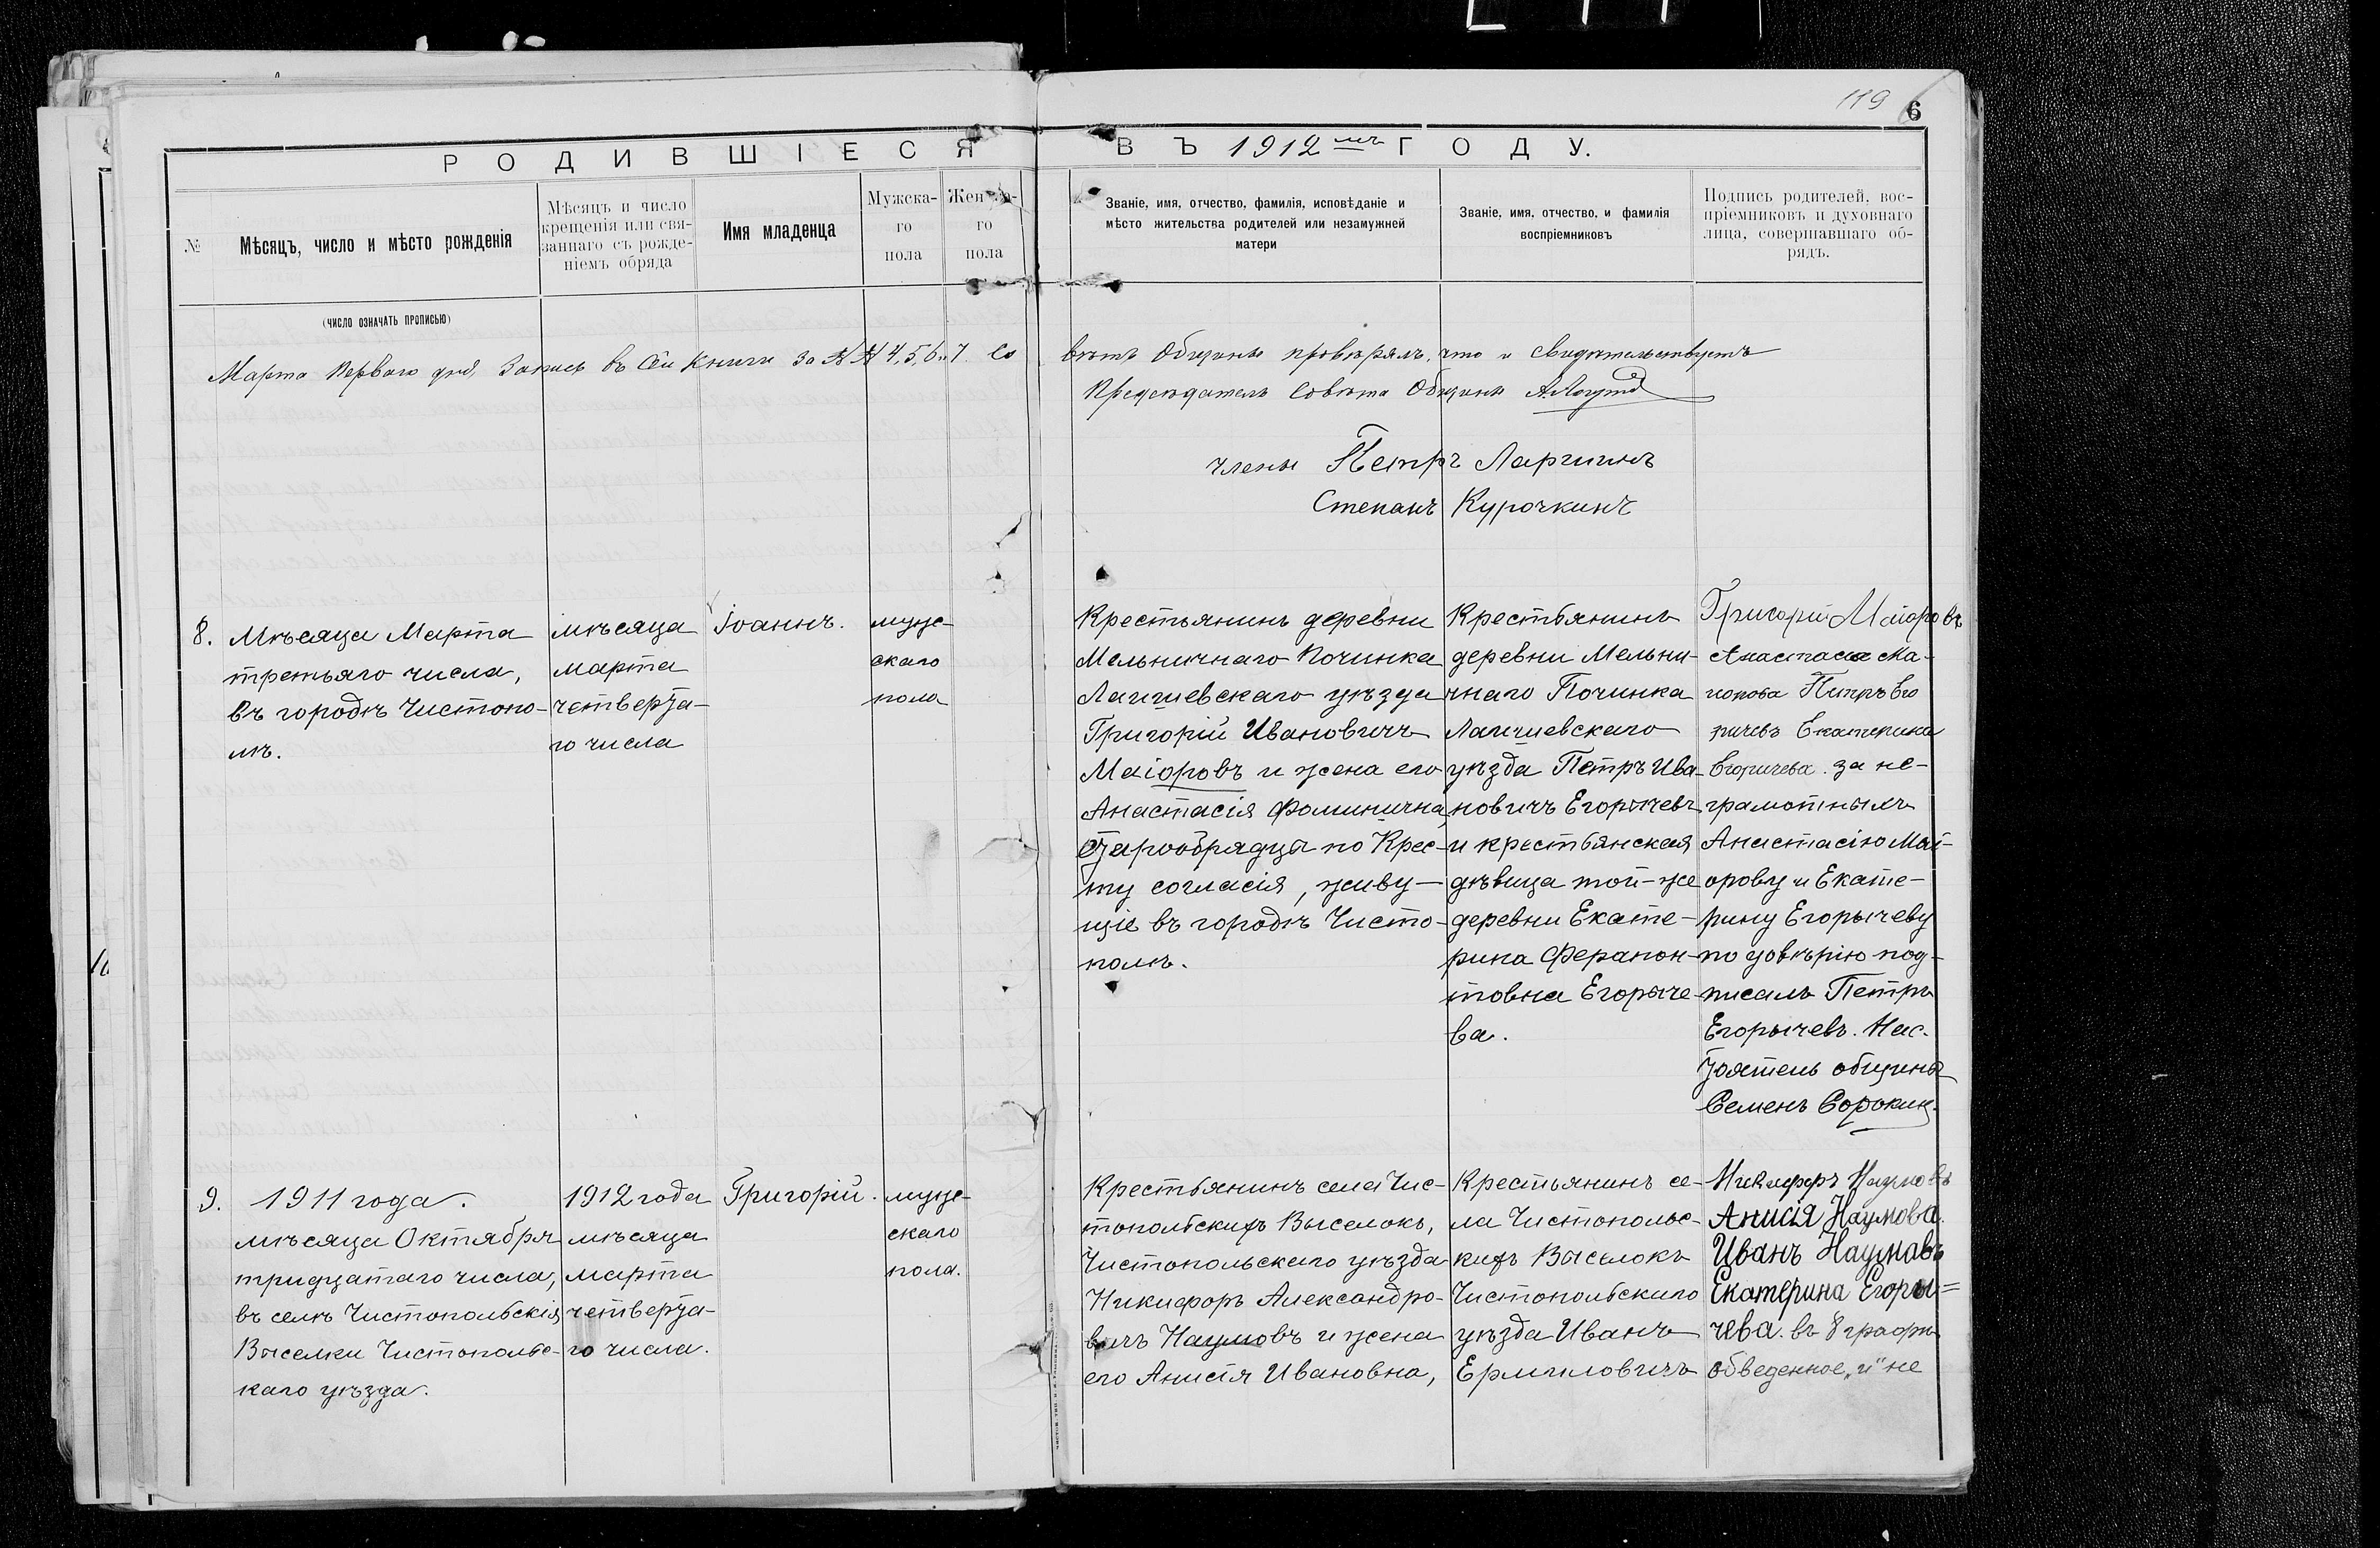 119 6
РОДИВШІЕСЯ ВЪ 1912мъ ГОДУ.
№
Мѣсяцъ, число и мѣсто рожденія
Мѣсяцъ и число
крещенія или свя-
заннаго съ рожде-
ніемъ обряда
Имя младенца
Мужска-
го
пола
Женска-
го
пола
Званіе, имя, отчество, фамилія, исповѣданіе и
мѣсто жительства родителей или незамужней
матери
Званіе, имя, отчество, и фамилія
воспріемниковъ
Подпись родителей, вос-
пріемниковъ и духовнаго
лица, совершавшаго об-
рядъ.
(число означать прописью)
Марта Перваго дня, Запись въ Сей Книги За №№ 4, 5, 6 и 7 Со
вѣтъ Общины провѣрялъ, что и Свидѣтельствуетъ
Предсѣдатель Совѣта Общины
члены Петръ Ларгинъ
Степанъ Курочкинъ
8.
Мѣсяца Марта
третьяго числа,
въ городѣ Чистопо-
лѣ.
мѣсяца
марта
четверта-
го числа
Іоаннъ.
муже-
скаго
пола
Крестьянинъ деревни
Мельничнаго Починка
Лаишевскаго уѣзда
Григорій Ивановичъ
Маіоровъ и жена его
Анастасія Фоминична,
старообрядцы по Крес-
ту согласія, живу-
щіе въ городѣ Чисто-
полѣ.
Крестьянинъ
деревни Мельни-
чнаго Починка
Лаишевскаго
уѣзда Петръ Ива-
новичъ Егорычевъ
и крестьянская
дѣвица той-же
деревни Екате-
рина Ферапон-
товна Егорыче-
ва.
Григорій Маіоровъ
Анастасія Ма-
иорова Петръ Его
ричевъ Екатерина
Егоричева. за не-
грамотныхъ
Анастасію Маі-
орову и Екате-
рину Егорычеву
по довѣрію под-
писалъ Петръ
Егорычевъ. Нас-
тоятель общины
Семенъ Сорокин.
9.
1911 года.
мѣсяца Октября
тридцатаго числа,
въ селѣ Чистопольскія
Выселки Чистопольс-
каго уѣзда.
1912 года
мѣсяца
марта
четверта-
го числа.
Григорій.
муже-
скаго
пола.
Крестьянинъ села Чис-
топольскихъ Выселокъ,
Чистопольскаго уѣзда
Никифоръ Александро-
вичъ Наумовъ и жена
его Анисія Ивановна,
Крестьянинъ се-
ла Чистопольс-
кихъ Выселокъ
Чистопольскаго
уѣзда Иванъ
Ермиловичъ
Никифоръ Наумовъ
Анисія Наумова.
Иванъ Наумавъ
Екатерина Егоры=
чева. въ 8 графѣ
обведенное „и" не